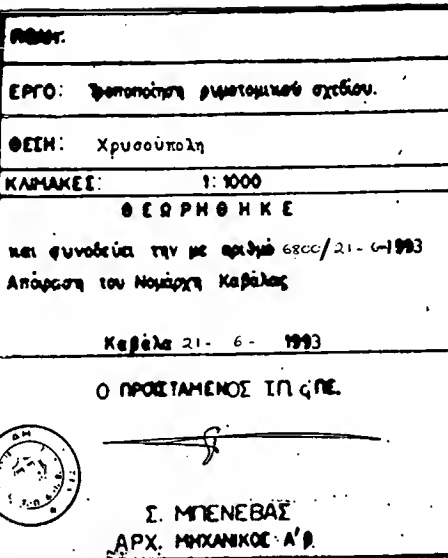 ΕΡΓΟ: Τροποποίηση ρυμοτομικού σχεδίου.
ΘΕΣΗ: Χρυσούπολη
ΚΛΙΜΑΚΕΣ: 1:1000
ΘΕΩΡΗΘΗΚΕ
και συνοδεύει την με αριθμό 6800/21-6-1993
Απόφαση του Νομάρχη Καβάλας
Καβάλα 21-6-1993
Ο ΠΡΟΙΣΤΑΜΕΝΟΣ
Σ. ΜΠΕΝΕΒΑΣ
ΑΡΧ. ΜΗΧΑΝΙΚΟΣ Α'β.